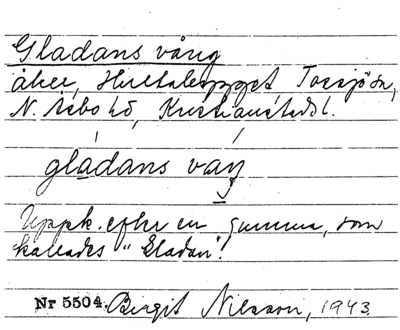 Gladans vång
åker, Hultaleppet Tossjö sn,
N. Åsbo hd, Kristianstads l.
gladans vaŋ
Uppk. efter en gumma, som
kallades "Gladan".
Nr 5504. Birgit Nilsson, 1943.